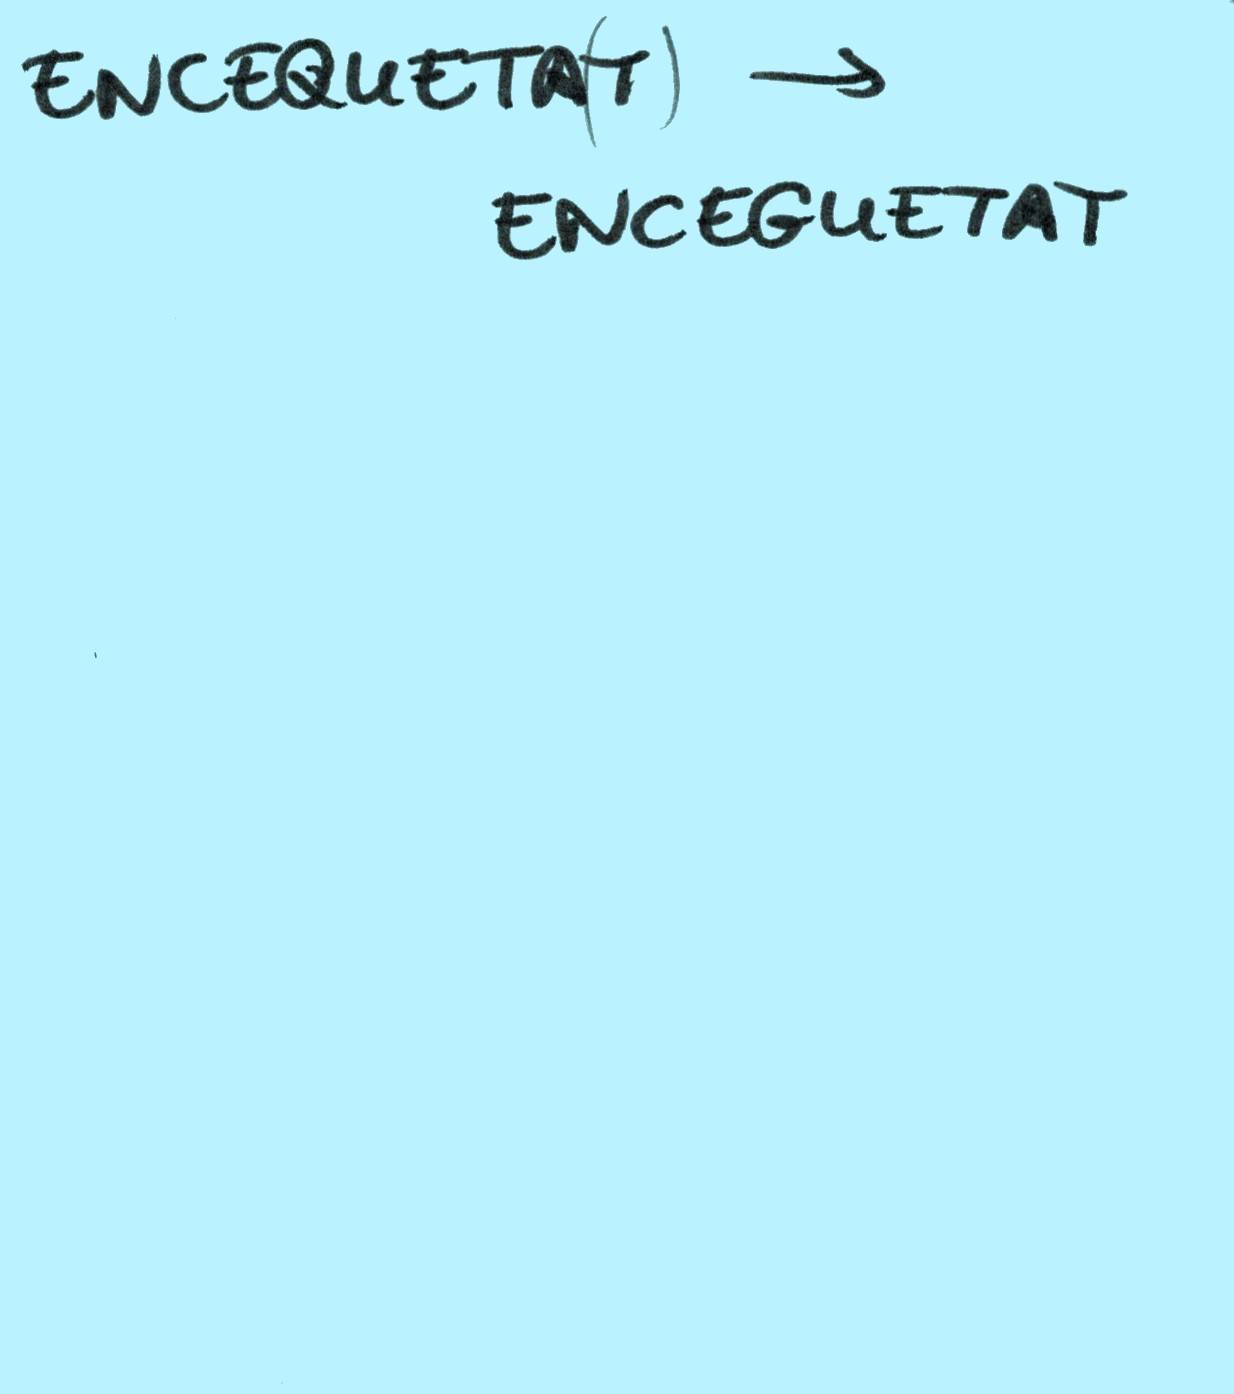 ENCEQUETA(T) →
ENCEGUETAT